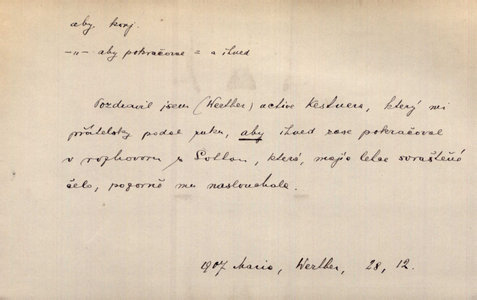 aby. konj.
–„– aby pokračoval a a ihned
Pozdravil jsem (Werther) active Kestnera, který mi
přátelsky podal ruku, aby ihned zase pokračoval
v rozhovoru s Lottou, která, majíc lehce svraštěné
čelo, pozorně mu naslouchala.
1907 Maria, Werther, 28, 12.